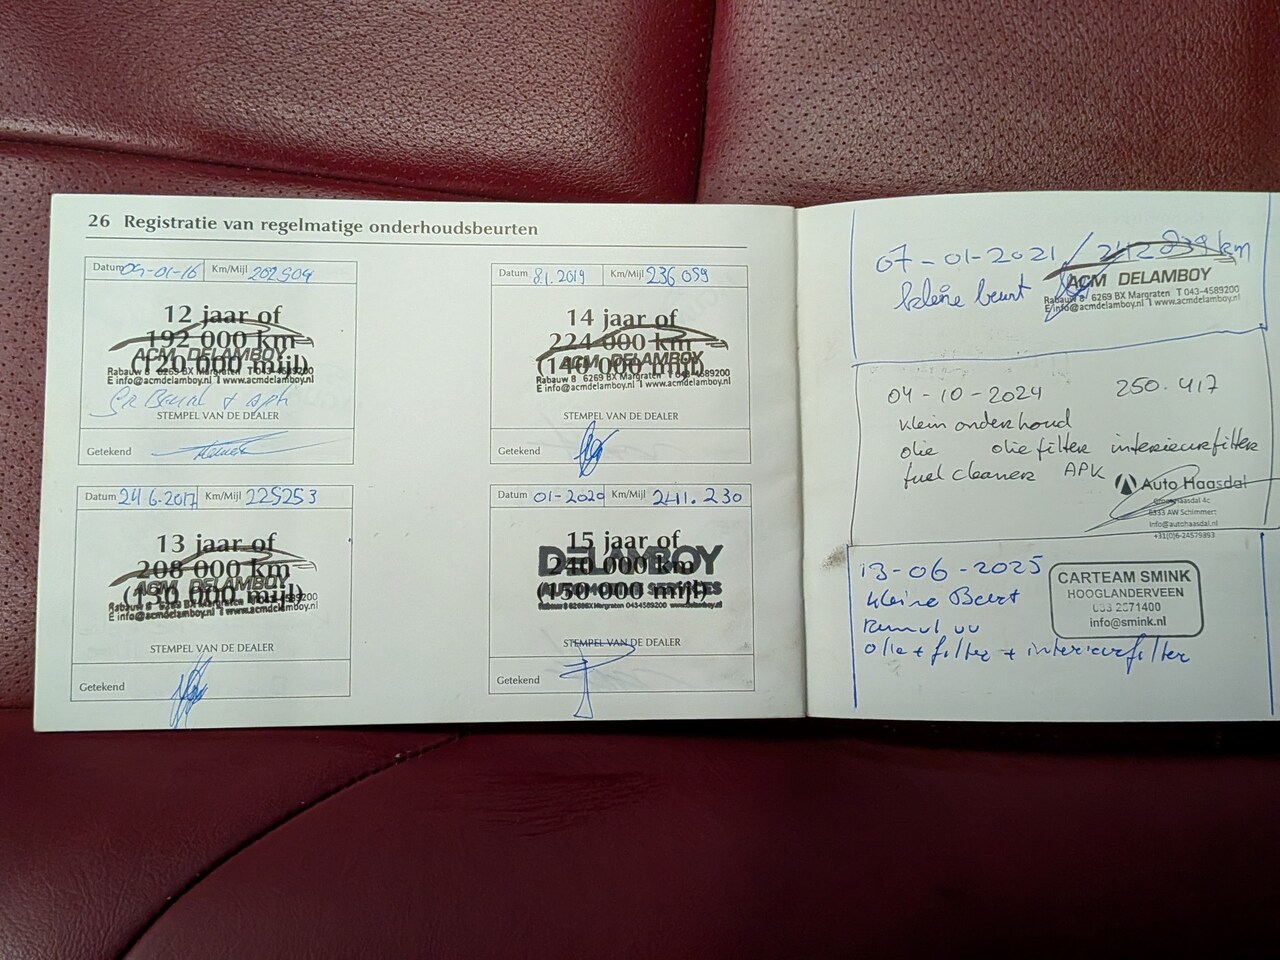 26 Registratie van regelmatige onderhoudsbeurten
Datum 09-01-16 Km/Mijl 202509
12 jaar of
192 000 km
(120 000 mijl)
ACM DELAMBOY
Rabauw 8 6269 BX Margraten T 043-4589200
E info@acmdelamboy.nl I www.acmdelamboy.nl
Gr Beurt + apk
STEMPEL VAN DE DEALER
Getekend
Datum 24.6.2017 Km/Mijl 225253
13 jaar of
208 000 km
(130 000 mijl)
ACM DELAMBOY
Rabauw 8 6269 BX Margraten T 043-4589200
E info@acmdelamboy.nl I www.acmdelamboy.nl
STEMPEL VAN DE DEALER
Getekend
Datum 8.1.2019 Km/Mijl 236 059
14 jaar of
224 000 km
(140 000 mijl)
ACM DELAMBOY
Rabauw 8 6269 BX Margraten T 043-4589200
E info@acmdelamboy.nl I www.acmdelamboy.nl
STEMPEL VAN DE DEALER
Getekend
Datum 01-2020 Km/Mijl 241.230
15 jaar of
240 000 km
(150 000 mijl)
DELAMBOY
STEMPEL VAN DE DEALER
Getekend
07-01-2021 / 242 839 km
kleine beurt
ACM DELAMBOY
Rabauw 8 6269 BX Margraten T 043-4589200
E info@acmdelamboy.nl I www.acmdelamboy.nl
04-10-2024 250.417
klein onderhoud
olie olie filter interieurfilter
fuel cleaner APK
Auto Haasdal
6333 AW Schimmert
info@autohaasdal.nl
+31(0)6-24579893
13-06-2025
kleine Beurt
olie + filter + interieurfilter
CARTEAM SMINK
HOOGLANDERVEEN
033 2571400
info@smink.nl